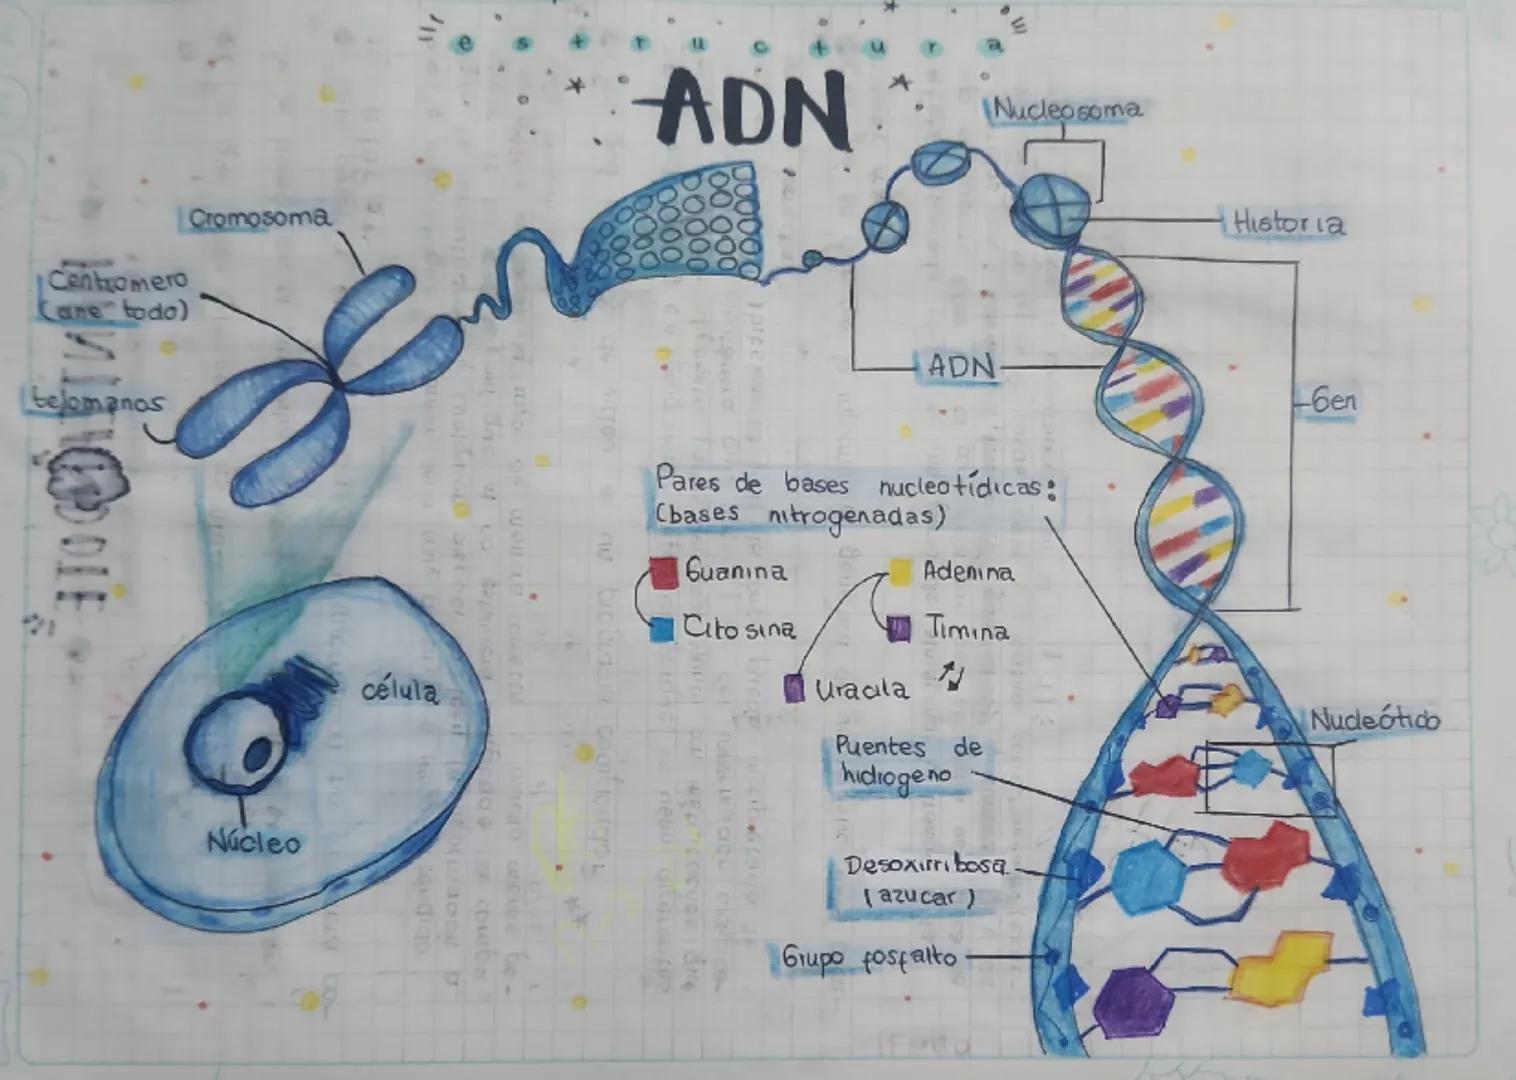 estructura
ADN
Nucleosoma
Cromosoma
Historia
Centromero
(une todo)
telomanos
ADN
Gen
Pares de bases nucleotídicas:
(bases nitrogenadas)
Guanina
Adenina
Citosina
Timina
Uracila
célula
Nucleótido
Puentes de
hidrogeno
Núcleo
Desoxirribosa
(azucar)
Grupo fosfalto